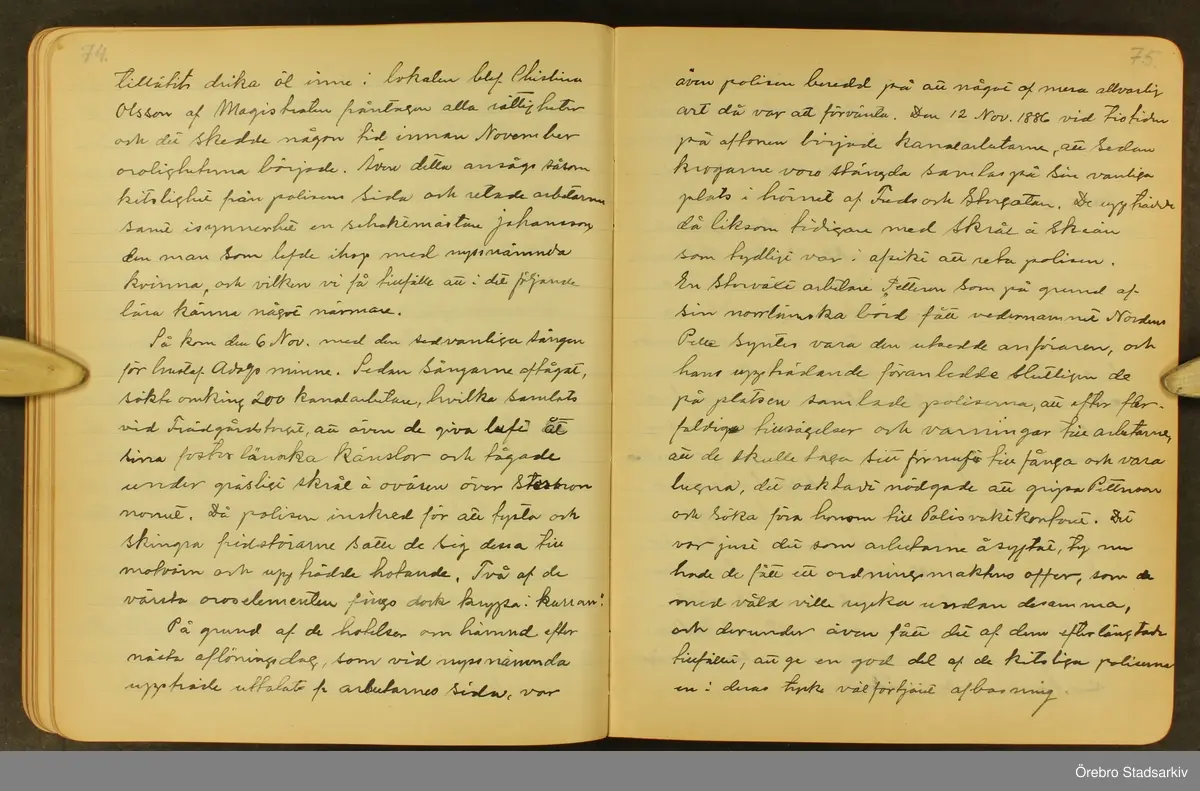 74.
tillåtits drika öl inne i lokalen blef Christina
Olsson af Magistraten fråntagen alla rättigheter
och det skedde någon tid innan November
oroligheterna började. Även detta ansågs såsom
kitslighet från polisens sida och retade arbetarna
samt isynnerhet en schaktmästare Johansson
den man som lefde ihop med nyssnämnda
kvinna, och vilken vi få tillfälle att i det följande
lära känna något närmare.
Så kom den 6 Nov. med den sedvanliga sången
för Gustaf Adolfs minne. Sedan Sångarne aftågat,
sökte omkring 200 kanalarbetare, hvilka samlats
vid Trädgårdstorget, att även de giva luft åt
sina fosterländska känslor och tågade
under gräsligt skrål å oväsen över Storbron
norrut. Då polisen inskred för att tysta och
skingra fridstörarne satte de sig dessa till
motvärn och uppträdde hotande. Två af de
värsta oroselementen fingo dock krypa i kurran.
På grund af de hotelser om hämnd efter
nästa aflöningsdag, som vid nyssnämnda
uppträde uttalats fr arbetarnes sida, var
75.
även polisen beredd på att något af mera allvarlig
art då var att förvänta. Den 12 Nov. 1886 vid tiotiden
på aftonen började kanalarbetarne, att sedan
krogarne voro stängda samlas på sin vanliga
plats i hörnet af Freds och Storgatan. De uppträdde
då liksom tidigare med skrål å skrän
som tydligt var i afsikt att reta polisen.
En storväxt arbetare Petterson som på grund af
sin norrländska börd fått vedernamnet Nordens
Pelle syntes vara den utsedde anföraren, och
hans uppträdande föranledde slutligen de
på platsen samlade poliserna, att efter fler-
faldiga tillsägelser och varningar till arbetarne,
att de skulle taga sitt förnuft till fånga och vara
lugna, det oaktadt nödgade att gripa Petterson
och söka föra honom till Polisvaktkontoret. Det
var just det som arbetarne åsyftat, ty nu
hade de fått ett ordningsmaktens offer, som de
med våld ville rycka undan densamma,
och derunder även fått det af dem efterlängtade
tillfället, att ge en god del af de kitsliga poliserna
en i deras tycke välförtjänt afbasning.
Örebro Stadsarkiv